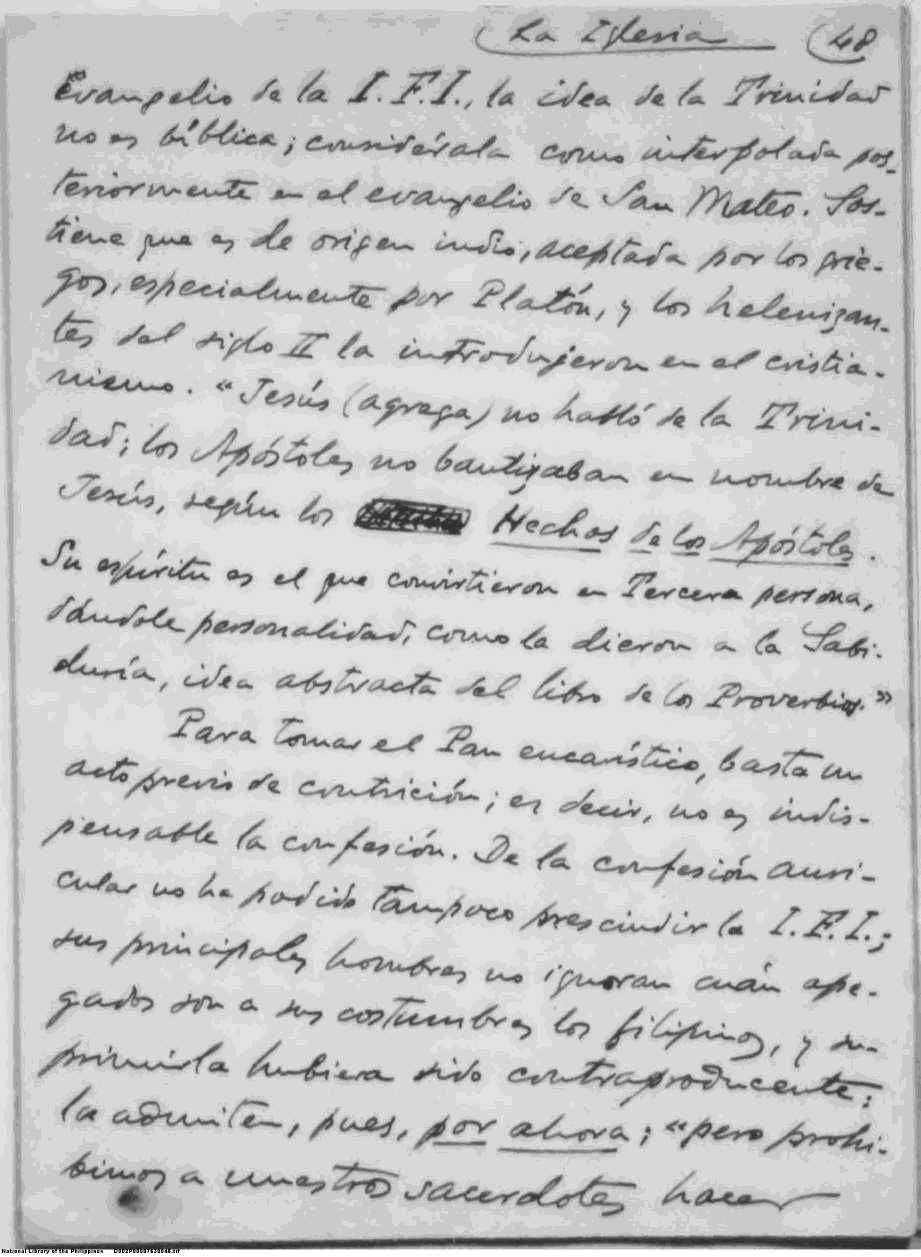 La Iglesia 48
Evangelio de la I.F.I., la idea de la Trinidad
no es bíblica; considérala como interpolada pos-
teriormente en el evangelio de San Mateo. Sos-
tiene que es de origen indio, aceptada por los grie-
gos, especialmente por Platón, y los helenizan-
tes del siglo II la introdujeron en el cristia-
nismo. "Jesús (agrega) no habló de la Trini-
dad; los Apóstoles no bautizaban en nombre de
Jesús, según los Hechos de los Apóstoles.
Su espíritu es el que convirtieron en Tercera persona,
dándole personalidad, como la dieron a la Sabi-
duría, idea abstracta del libro de los Proverbios."
Para tomar el Pan eucarístico, basta un
acto previo de contrición; es decir, no es indis-
pensable la confesión. De la confesión auri-
cular no ha podido tampoco prescindir la I.F.I.;
sus principales hombres no ignoran cuán ape-
gados son a sus costumbres los filipinos, y su-
primirla hubiera sido contraproducente;
la admiten, pues, por ahora; "pero prohi-
bimos a nuestros sacerdotes hacer
National Library of the Philippines